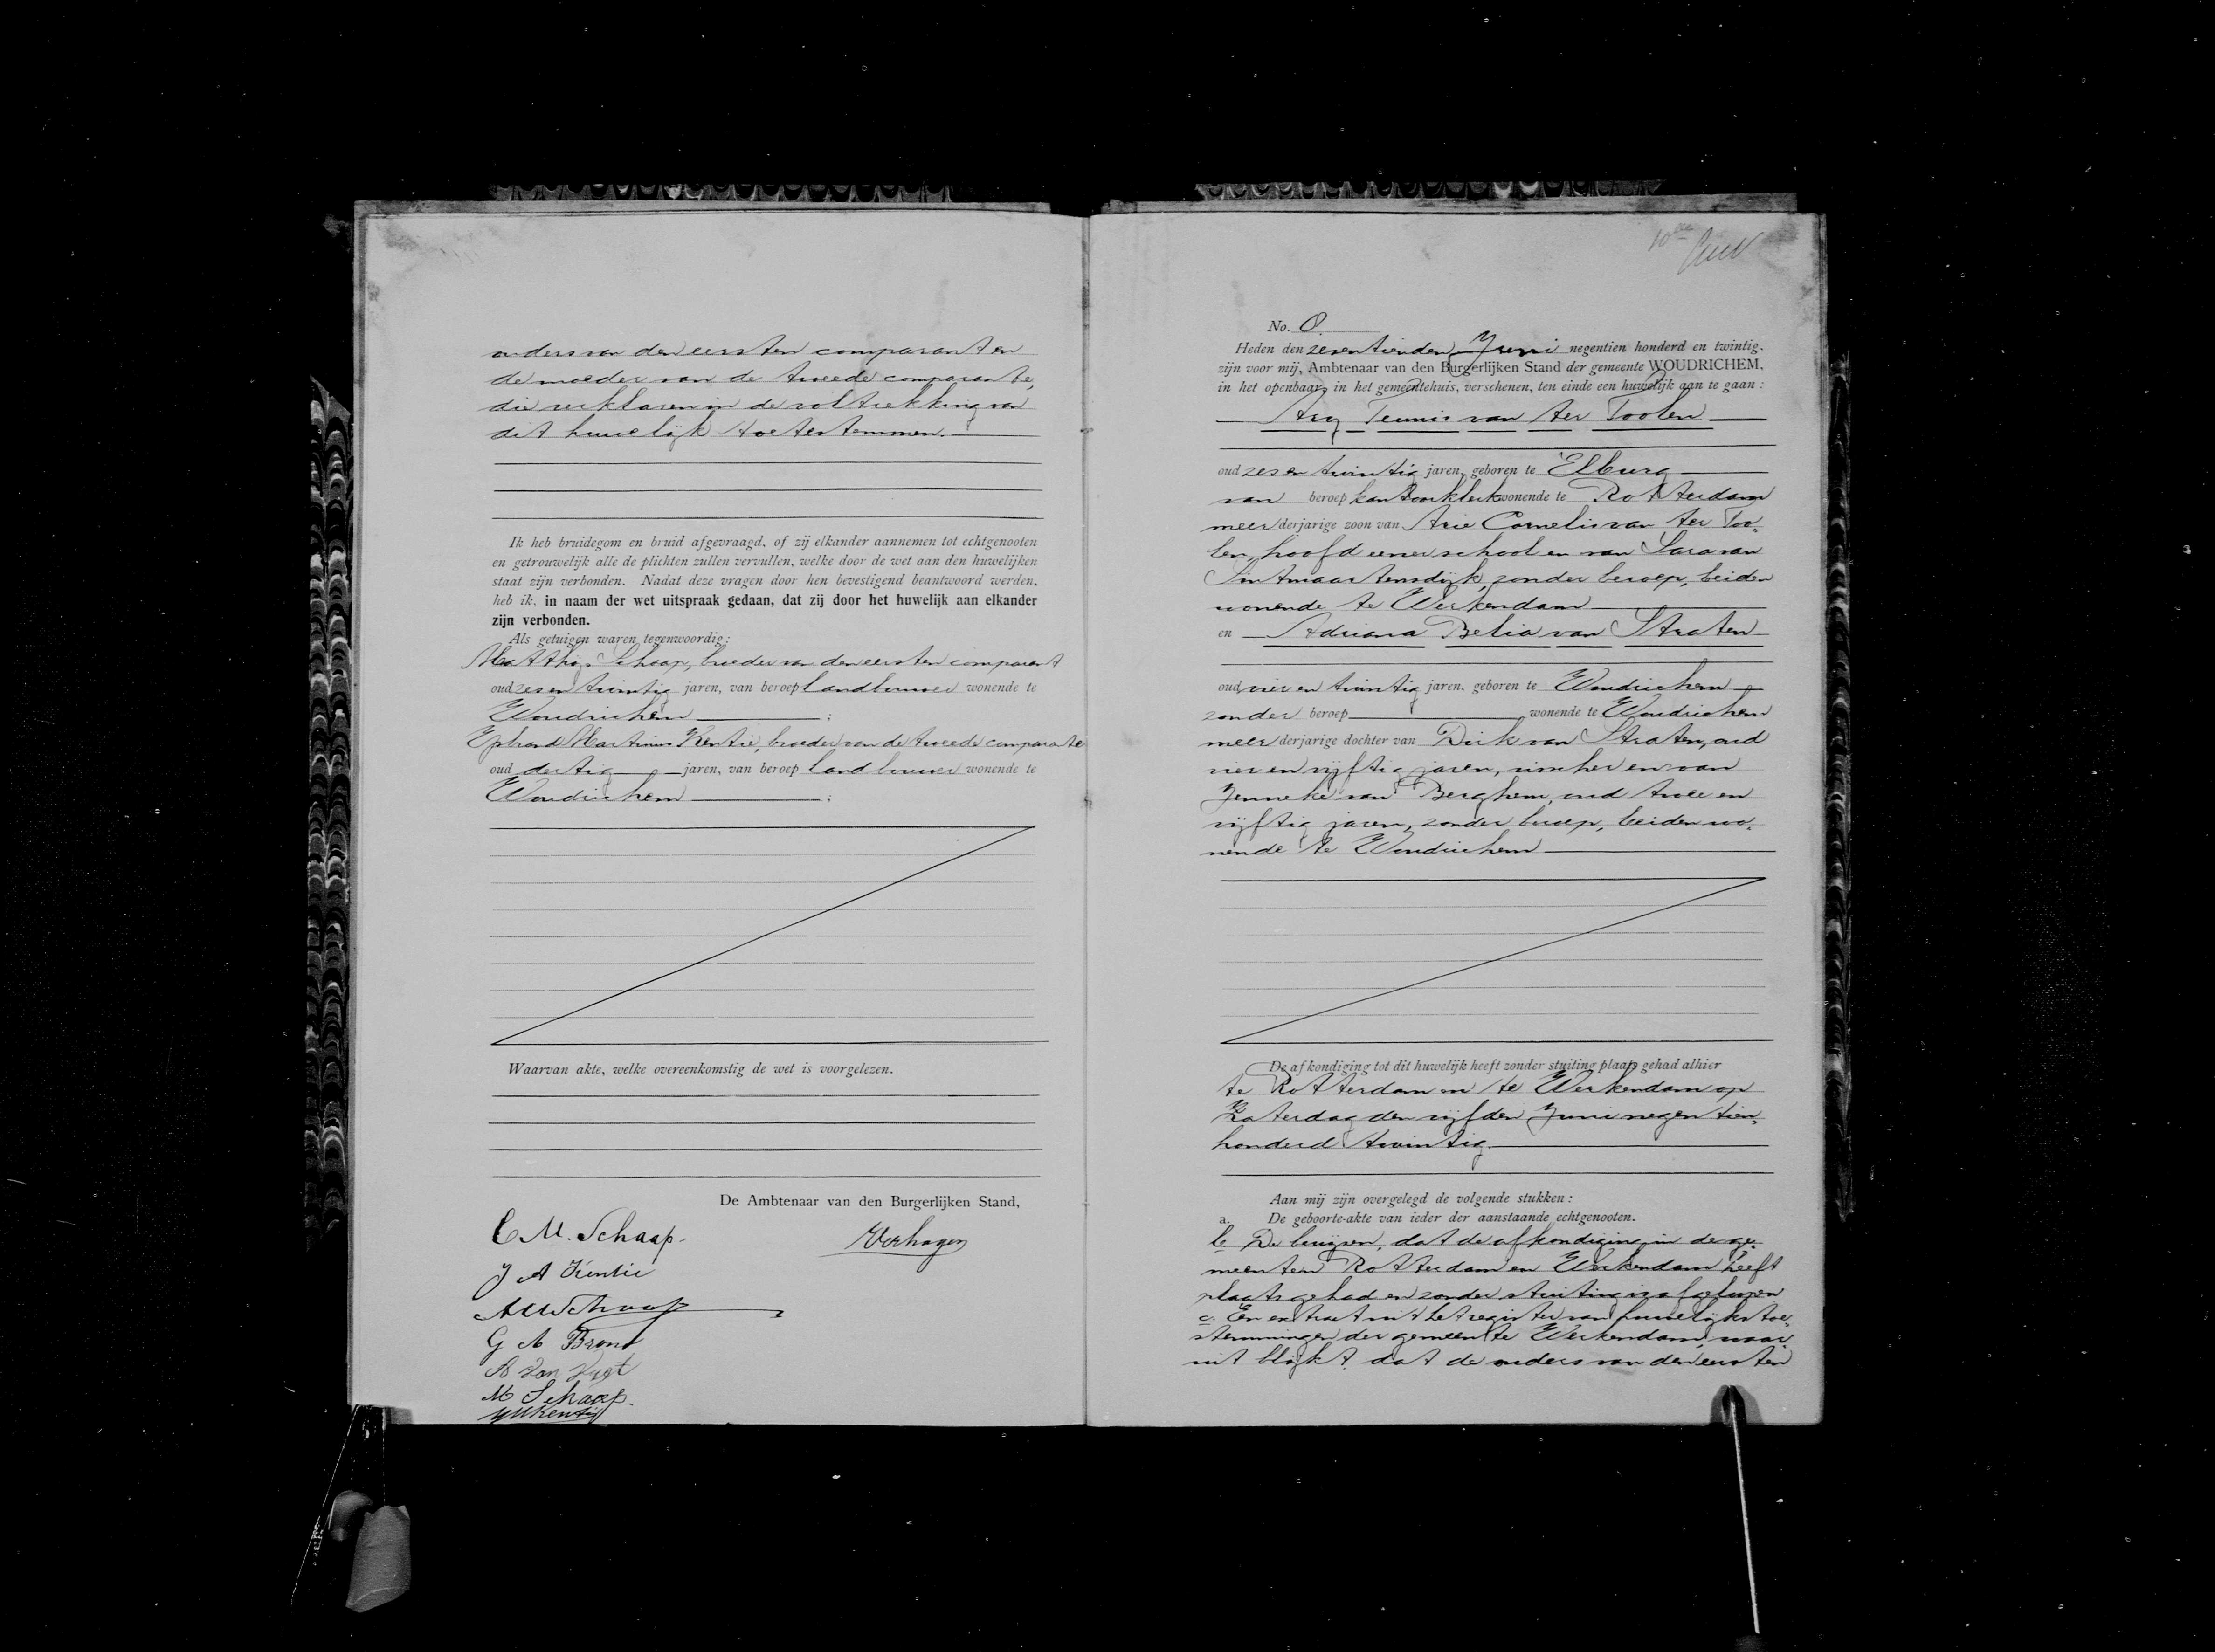 ouders van den eersten comparant en
de moeder van de tweede comparante,
die verklaren in de voltrekking van
dit huwelijk toe te stemmen.
Ik heb bruidegom en bruid afgevraagd, of zij elkander aannemen tot echtgenooten
en getrouwelijk alle de plichten zullen vervullen, welke door de wet aan den huwelijken
staat zijn verbonden. Nadat deze vragen door hen bevestigend beantwoord werden,
heb ik, in naam der wet uitspraak gedaan, dat zij door het huwelijk aan elkander
zijn verbonden.
Als getuigen waren tegenwoordig:
Matthijs Schaap, broeder van den eersten comparant
oud zes en twintig jaren, van beroep landbouwer wonende te
Woudrichem ;
IJsbrand Martinus Kentie, broeder van de tweede comparante
oud dertig jaren, van beroep landbouwer wonende te
Woudrichem ;
Waarvan akte, welke overeenkomstig de wet is voorgelezen.
De Ambtenaar van den Burgerlijken Stand,
C M. Schaap. Verhagen
J A Kentie
A M Schaap
G A Brond
M Schaap.
YMKentie
10de
No. 8.
Heden den zeventienden Juni negentien honderd en twintig,
zijn voor mij, Ambtenaar van den Burgerlijken Stand der gemeente WOUDRICHEM,
in het openbaar, in het gemeentehuis, verschenen, ten einde een huwelijk aan te gaan:
Arij Teunis van ter Toolen
oud zes en twintig jaren, geboren te Elburg
van beroep kantoorklerk wonende te Rotterdam
meerderjarige zoon van Arie Cornelis van ter Too-
len, hoofd eener school en van Sara van
Sintmaartensdijk, zonder beroep, beiden
wonende te Werkendam
en Adriana Belia van Straten
oud vier en twintig jaren, geboren te Woudrichem
zonder beroep wonende te Woudrichem
meerderjarige dochter van Dirk van Straten, oud
vier en vijftig jaren, visscher en van
Jenneke van Berghem, oud twee en
vijftig jaren, zonder beroep, beiden wo-
nende te Woudrichem
De afkondiging tot dit huwelijk heeft zonder stuiting plaats gehad alhier
te Rotterdam en te Werkendam op
Zaterdag den vijfden Juni negentien-
honderd twintig.
Aan mij zijn overgelegd de volgende stukken:
a. De geboorte-akte van ieder der aanstaande echtgenooten.
b. De bewijzen, dat de afkondiging in de ge-
meenten Rotterdam en Werkendam heeft
plaats gehad en zonder stuiting is afgeloopen
c. Een extract uit het register van huwelijkstoe-
stemmingen der gemeente Werkendam, waar-
uit blijkt, dat de ouders van den eersten